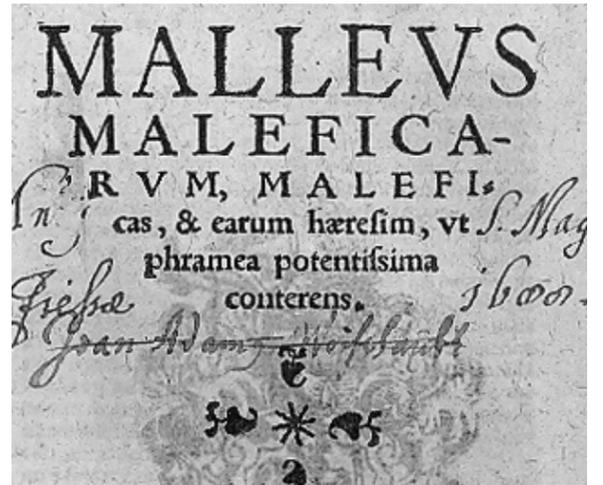 MALLEVS
MALEFICA-
RVM, MALEFI-
cas, & earum hæreſim, vt
phramea potentiſsima
conterens.
S. Mag
1600.
Joan Adam